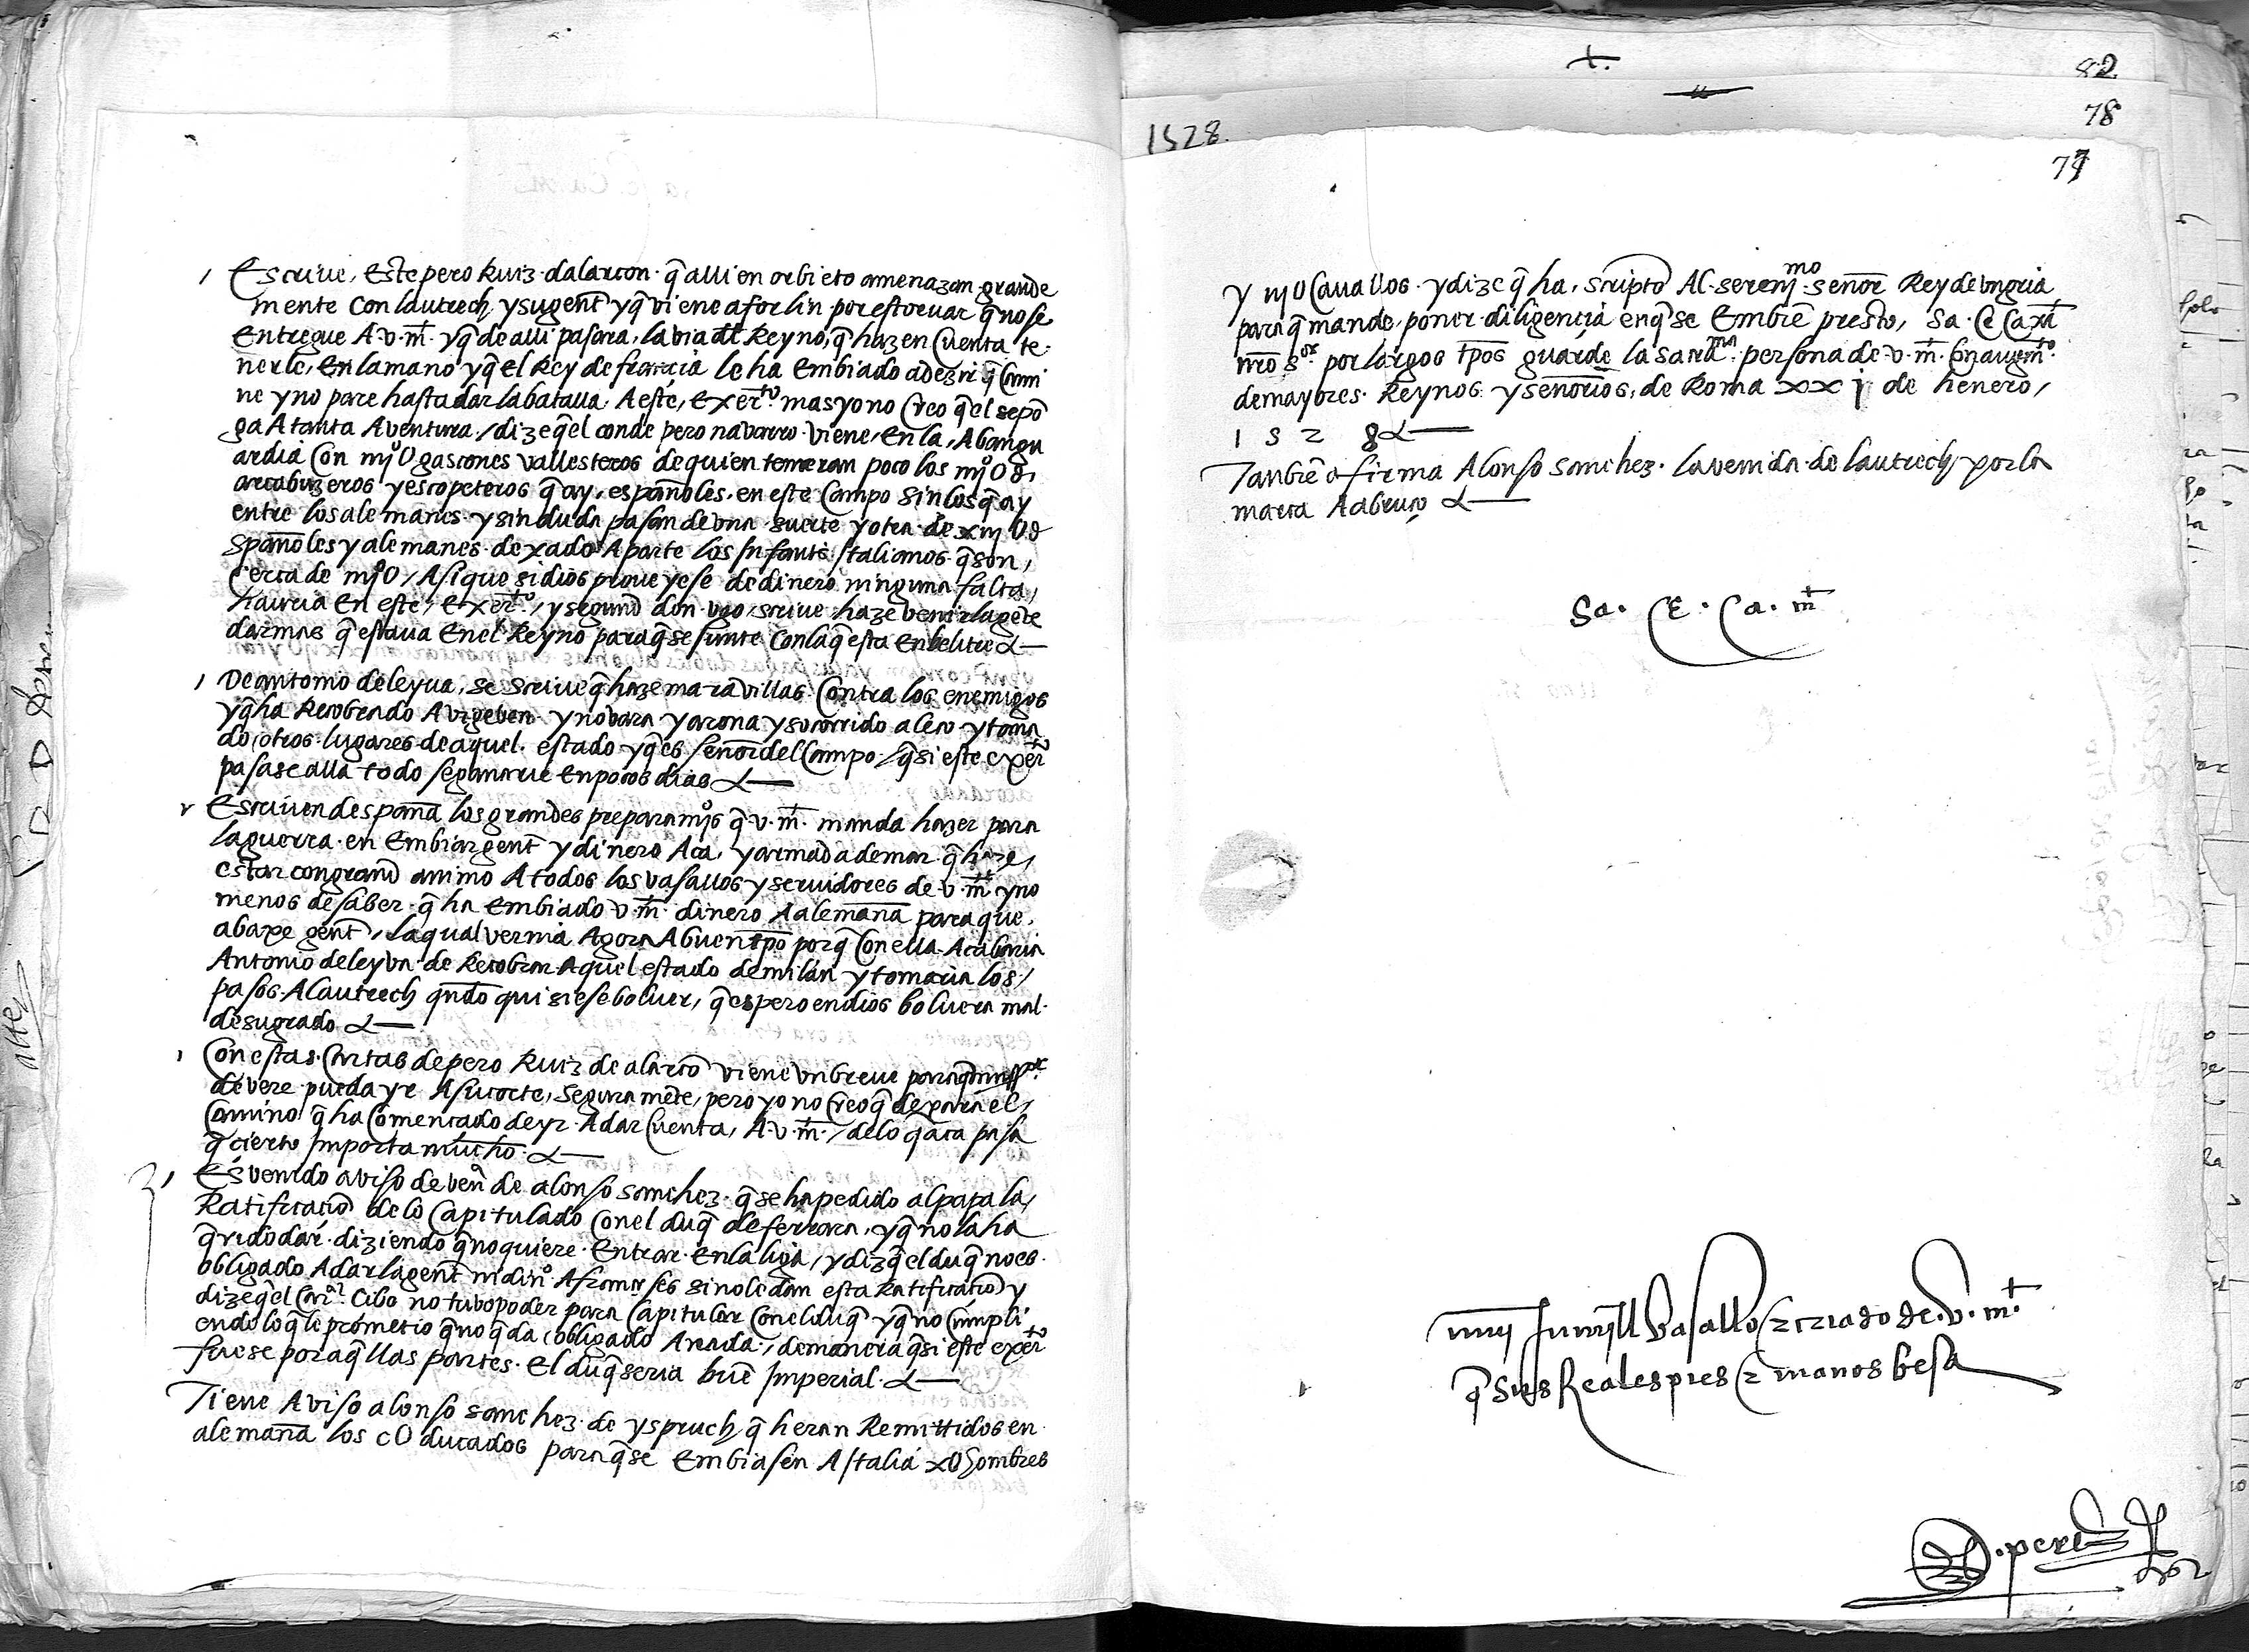 / Escriue, este pero Ruiz dalarcon. q̃ alli en orbieto amenazan grande
mente con lautrech, y su gent̃ y q̃ viene a forlin por estoruar q̃ no se
entregue A. v. m̃t. y q̃ de alli pasara, la via dl Reyno, q̃ hazen cuenta te-
nerle, en la mano y q̃ el Rey de francia le ha embiado a dezir q̃ cami
ne y no pare hasta dar la batalla. A este, exerto. mas yo no creo q̃ el se põ
ga A tanta Aventura / dize q̃ el conde pero navarro. viene, en la, Abangu
ardia con iiijU gascones vallesteros de quien temeran poco los iiijU d,
arcabuzeros y escopeteros q̃ ay, españoles. en este campo sin los q̃ ay
entre los alemanes. y sin duda pasan de vna suerte y otra de xiijU d
spañoles y alemanes. dexado Aparte los Infantẽs Italianos q̃ son,
cerca de iiijU / Asi que si dios proueyese de dinero ninguna falta,
hauria en este, exerto., y segund don vgo, scriue haze venir la gẽte
darmas q̃ estaua en el Reyno para q̃ se junte con la q̃ esta en belitre
/ De antonio de leyua, se scriue q̃ haze marauillas. contra los enemigos
y q̃ ha Recobrado A vigeven. y nobara y arona y socorrido a leco y toma
do otros lugares de aquel. estado y q̃ es señor del campo / q̃ si este exerto
pasase alla todo se ganarie en pocos dias
r Escriuen despaña los grandes preparamos q̃ v. m̃t. manda hazer para
la guerra. en embiar gent̃ y dinero Aca, y armada de mar. q̃ haze,
estar con grand animo A todos los vasallos y seruidores de v. m̃t. y no
menos de saber. q̃ ha embiado v. m̃t. dinero A alemaña para que.
abaxe gent̃, la qual vernia Agora A buen tp̃o porq̃ con ella Acabaria
Antonio de leyva de Recobrar Aquel estado de milan y tomaria los,
pasos. A lautrech qñdo quisiese boluer, q̃ espero en dios boluera mal.
de su grado
, Con estas. cartas de pero Ruiz de alarcõ viene vn breue para q̃
de vere pueda yr A su corte, seguramẽte, pero yo no creo q̃ dexara el,
camino q̃ ha començado de yr. A dar cuenta, A. v. m̃t. / de lo q̃ aca pasa
q̃ cierto Importa mucho.
, Es venido aviso de ven.a de alonso sanchez. q̃ se ha pedido al papa la,
Ratificatiõ de lo capitulado con el duq̃ de ferrara, y q̃ no la ha
q̃rido dar. diziendo q̃ no quiere. entrar. en la liga, y diz q̃ el duq̃ no es.
obligado A dar la gent̃ ni dino. A franceses si no le dan esta Ratificatiõ y
dize q̃ el Caral. Cibo no tubo poder para capitular con el duq̃ y q̃ no cumpli
endo lo q̃ le prometio q̃ no q̃da obligado A nada, de manera q̃ si este exerto
fuese por aq̃llas partes. el duq̃ seria buẽ Imperial.
Tiene Aviso alonso sanchez. de yspruch q̃ heran Remittidos en
alemaña los cU ducados para q̃ se embiasen A Italia xU hombres
82
78
77
1528.
y iijU cauallos. y dize q̃ ha, scripto Al. serenimo. señor Rey de vngria
para q̃ mande, poner diligencia en q̃ se embiẽ presto, Sa. Ce. Ca. m̃t
nr̃o sor. por largos tp̃os guarde la sacrama. persona de. v. m̃t. con augmto.
de mayores. Reynos y señorios, de Roma xxj de henero,
1 5 2 8
Tanbiẽ afirma Alonso sanchez. la venida de lautrech, por la
marca A abruço
Sa. Ce. Ca. mt
muy humyll basallo z criado de. v. mt.
q̃ sus Reales pies z manos besa
. perez